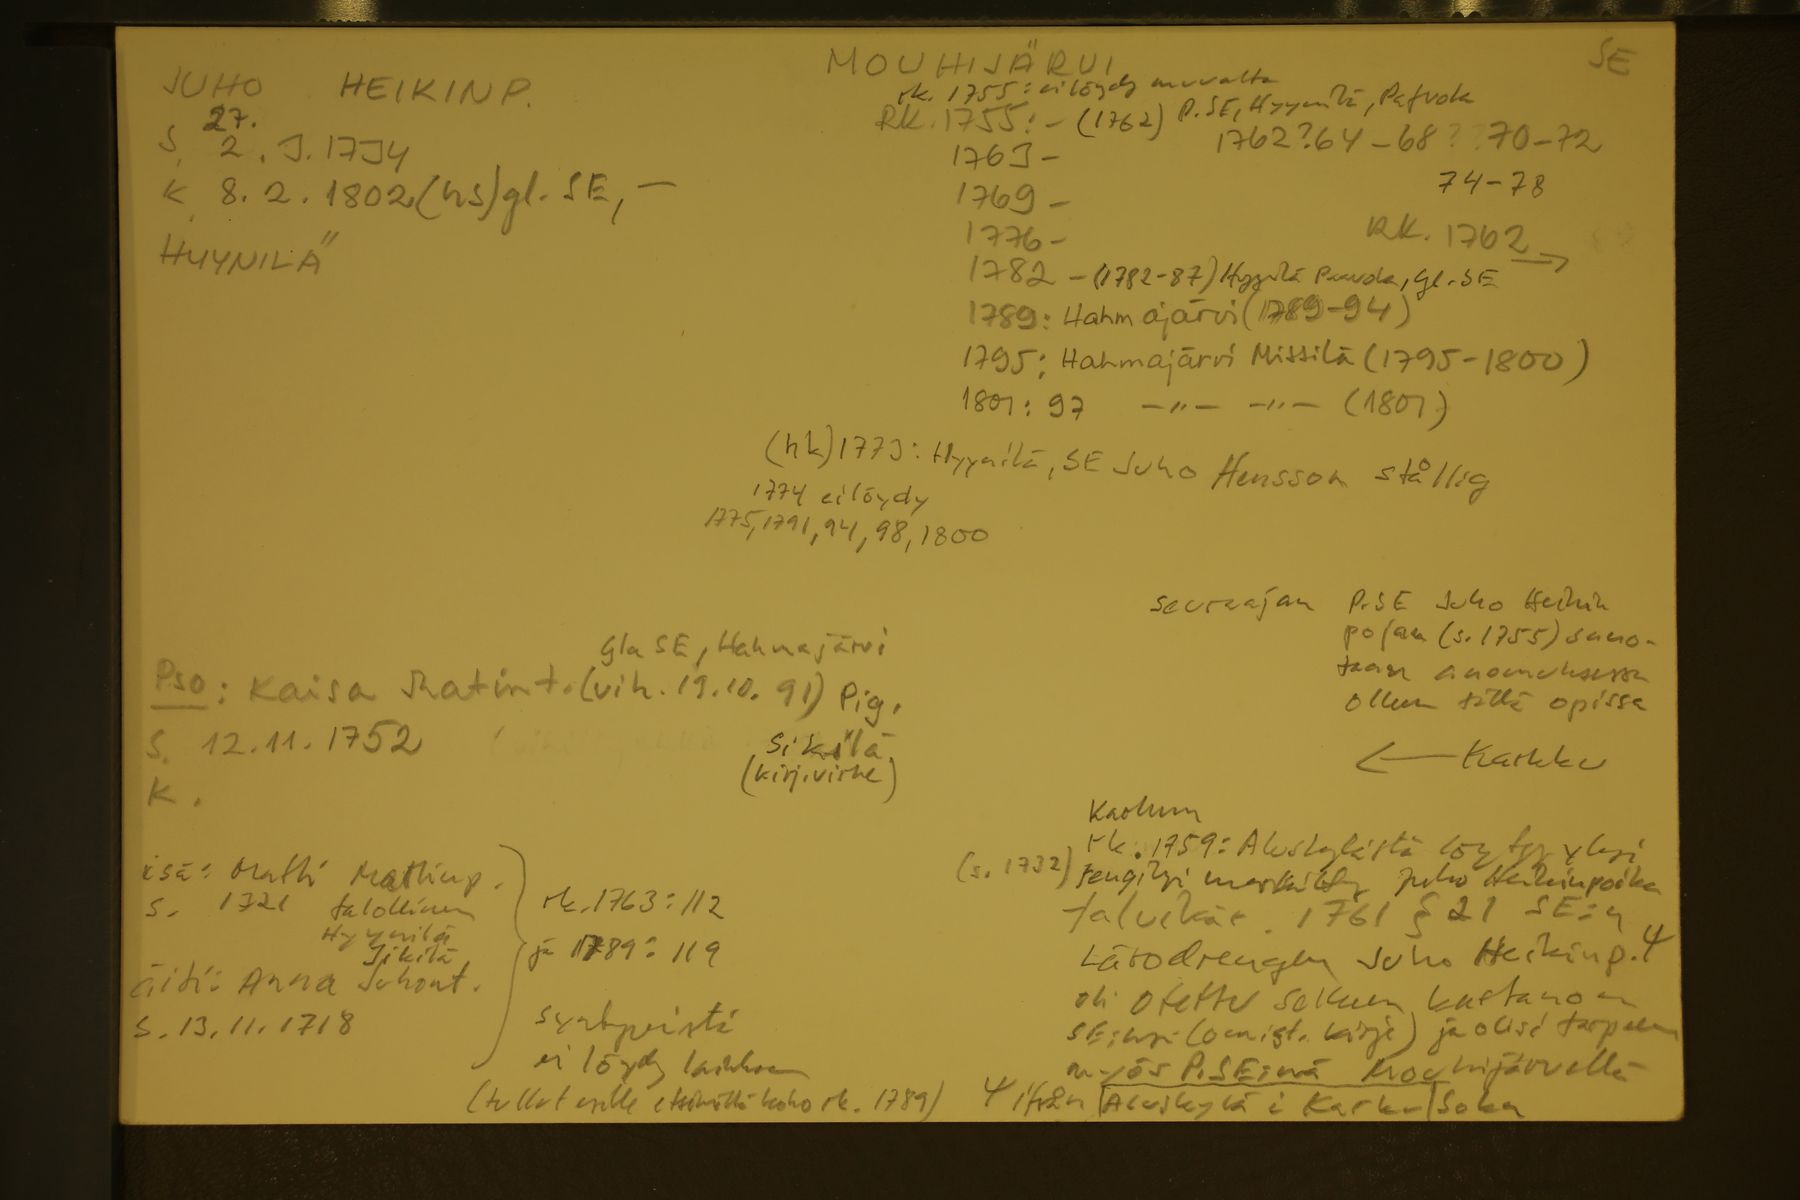 MOUHIJÄRVI
SE
JUHO HEIKINP.
27.
S. 2.3.1734
K. 8.2.1802 (hs) gl. SE, —
HYYNILÄ
rk. 1755: ei löydy muualta
RK. 1755: - (1762) P.SE, Hyynilä, Pafvola
1762?64-68??70-72
1763 -
74-78
1769 -
1776 -
RK. 1762 →
1782 - (1782-87) Hyynilä Paavola, gl. SE
1789: Hahmajärvi (1789-94)
1795: Hahmajärvi Missilä (1795-1800)
1801: 97 -"- -"- (1801)
(hk) 1773: Hyynilä, SE Juho Hensson ställig
1774 ei löydy
1775, 1791, 94, 98, 1800
seuraajan P.SE Juho Heikin
pojan (s. 1755) sano-
taan anomuksessa
olleen tällä opissa
← Karkku
gla SE, Hahmajärvi
Pso: Kaisa Matint. (vih. 19.10.91) Pig.
S. 12.11.1752
Sikilä
(kirj.virhe)
K.
isä: Matti Mattinp.
s. 1721 talollinen
Hyynilä
Sikilä
äiti: Anna Juhont.
s. 13.11.1718
rk. 1763: 112
ja 1789: 119
syntyneistä
ei löydy
(tullut esille etsimällä koko rk. 1789)
Karkun
rk. 1759: Aluskylästä löytyy yksi
(s. 1732) rengiksi merkitty Juho Heikinpoika
talvikär. 1761 § 21 SE:n
Lärodrengen Juho Heikinp. Ψ
oli otettu
SE:ksi (omist. kirje) ja olisi tarpeen
myös P.SE:nä Mouhijärvellä
Ψ ifrån Aluskylä i Karku Soken